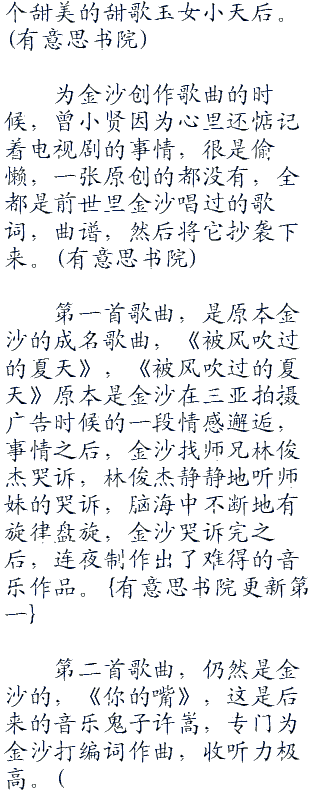 个甜美的甜歌玉女小天后。
(有意思书院)
为金沙创作歌曲的时
候，曾小贤因为心里还惦记
着电视剧的事情，很是偷
懒，一张原创的都没有，全
都是前世里金沙唱过的歌
词，曲谱，然后将它抄袭下
来。(有意思书院)
第一首歌曲，是原本金
沙的成名歌曲，《被风吹过
的夏天》，《被风吹过的夏
天》原本是金沙在三亚拍摄
广告时候的一段情感邂逅，
事情之后，金沙找师兄林俊
杰哭诉，林俊杰静静地听师
妹的哭诉，脑海中不断地有
旋律盘旋，金沙哭诉完之
后，连夜制作出了难得的音
乐作品。{有意思书院更新第
一}
第二首歌曲，仍然是金
沙的，《你的嘴》，这是后
来的音乐鬼子许嵩，专门为
金沙打编词作曲，收听力极
高。(